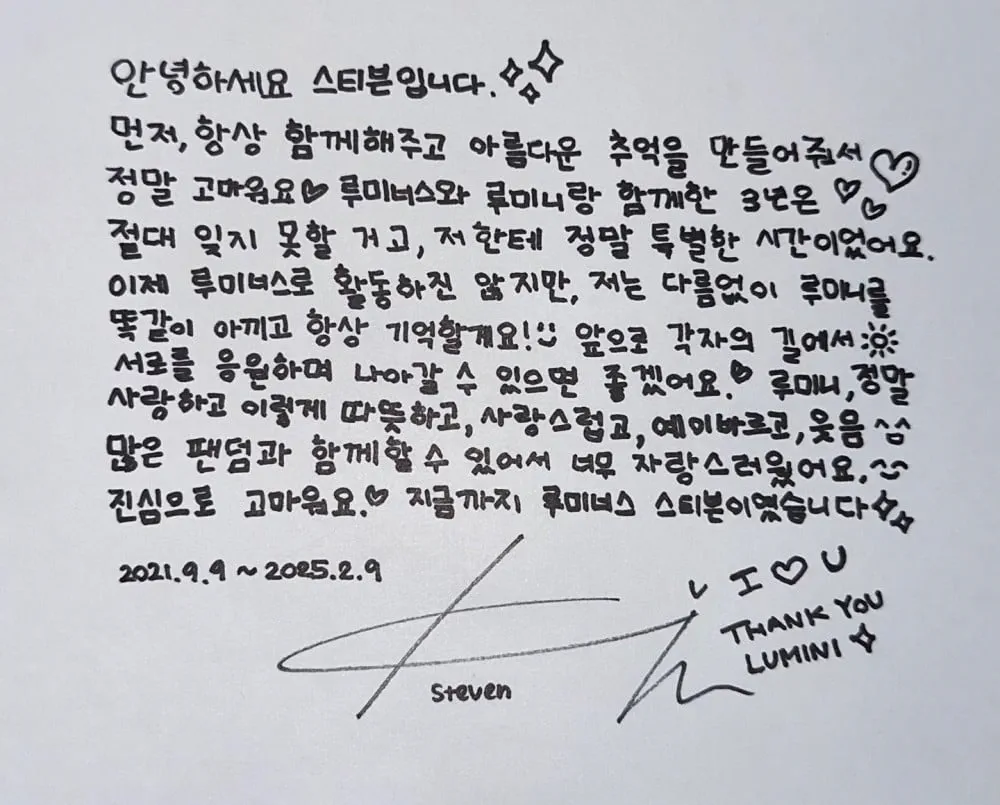 안녕하세요 스티븐입니다.
먼저, 항상 함께해주고 아름다운 추억을 만들어줘서
정말 고마워요♡ 루미너스와 루미니랑 함께한 3년은
절대 잊지 못할 거고, 저한테 정말 특별한 시간이었어요.
이제 루미너스로 활동하진 않지만, 저는 다름없이 루미니를
똑같이 아끼고 항상 기억할게요! 앞으로 각자의 길에서
서로를 응원하며 나아갈 수 있으면 좋겠어요.♡ 루미니, 정말
사랑하고 이렇게 따뜻하고, 사랑스럽고, 예의바르고, 웃음 ^^
많은 팬덤과 함께할 수 있어서 너무 자랑스러웠어요.
진심으로 고마워요.♡ 지금까지 루미너스 스티븐이였습니다
2021.9.9 ~ 2025.2.9
I ♡ U
THANK YOU
LUMINI
Steven